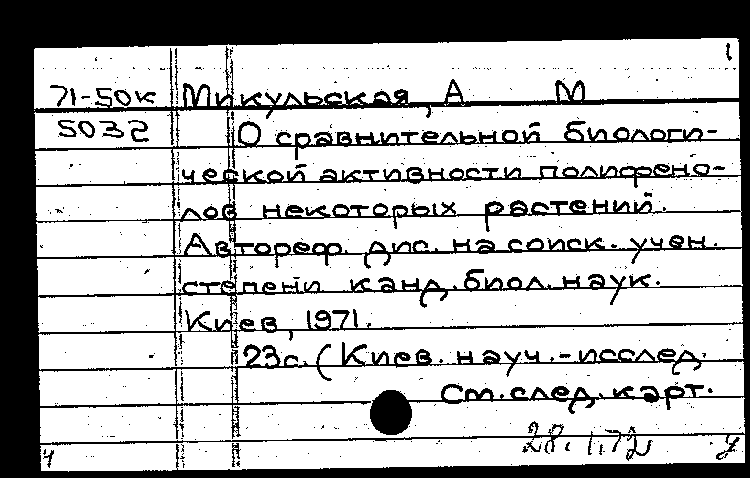 1
71-50к Микульская, А М
5032 О сравнительной биологи-
ческой активности полифено-
лов некоторых растений.
Автореф. дис. на соиск. учен.
степени канд. биол. наук.
Киев, 1971.
23с. (Киев. науч.-исслед.
См. след. карт.
28.1.72 У
Ч